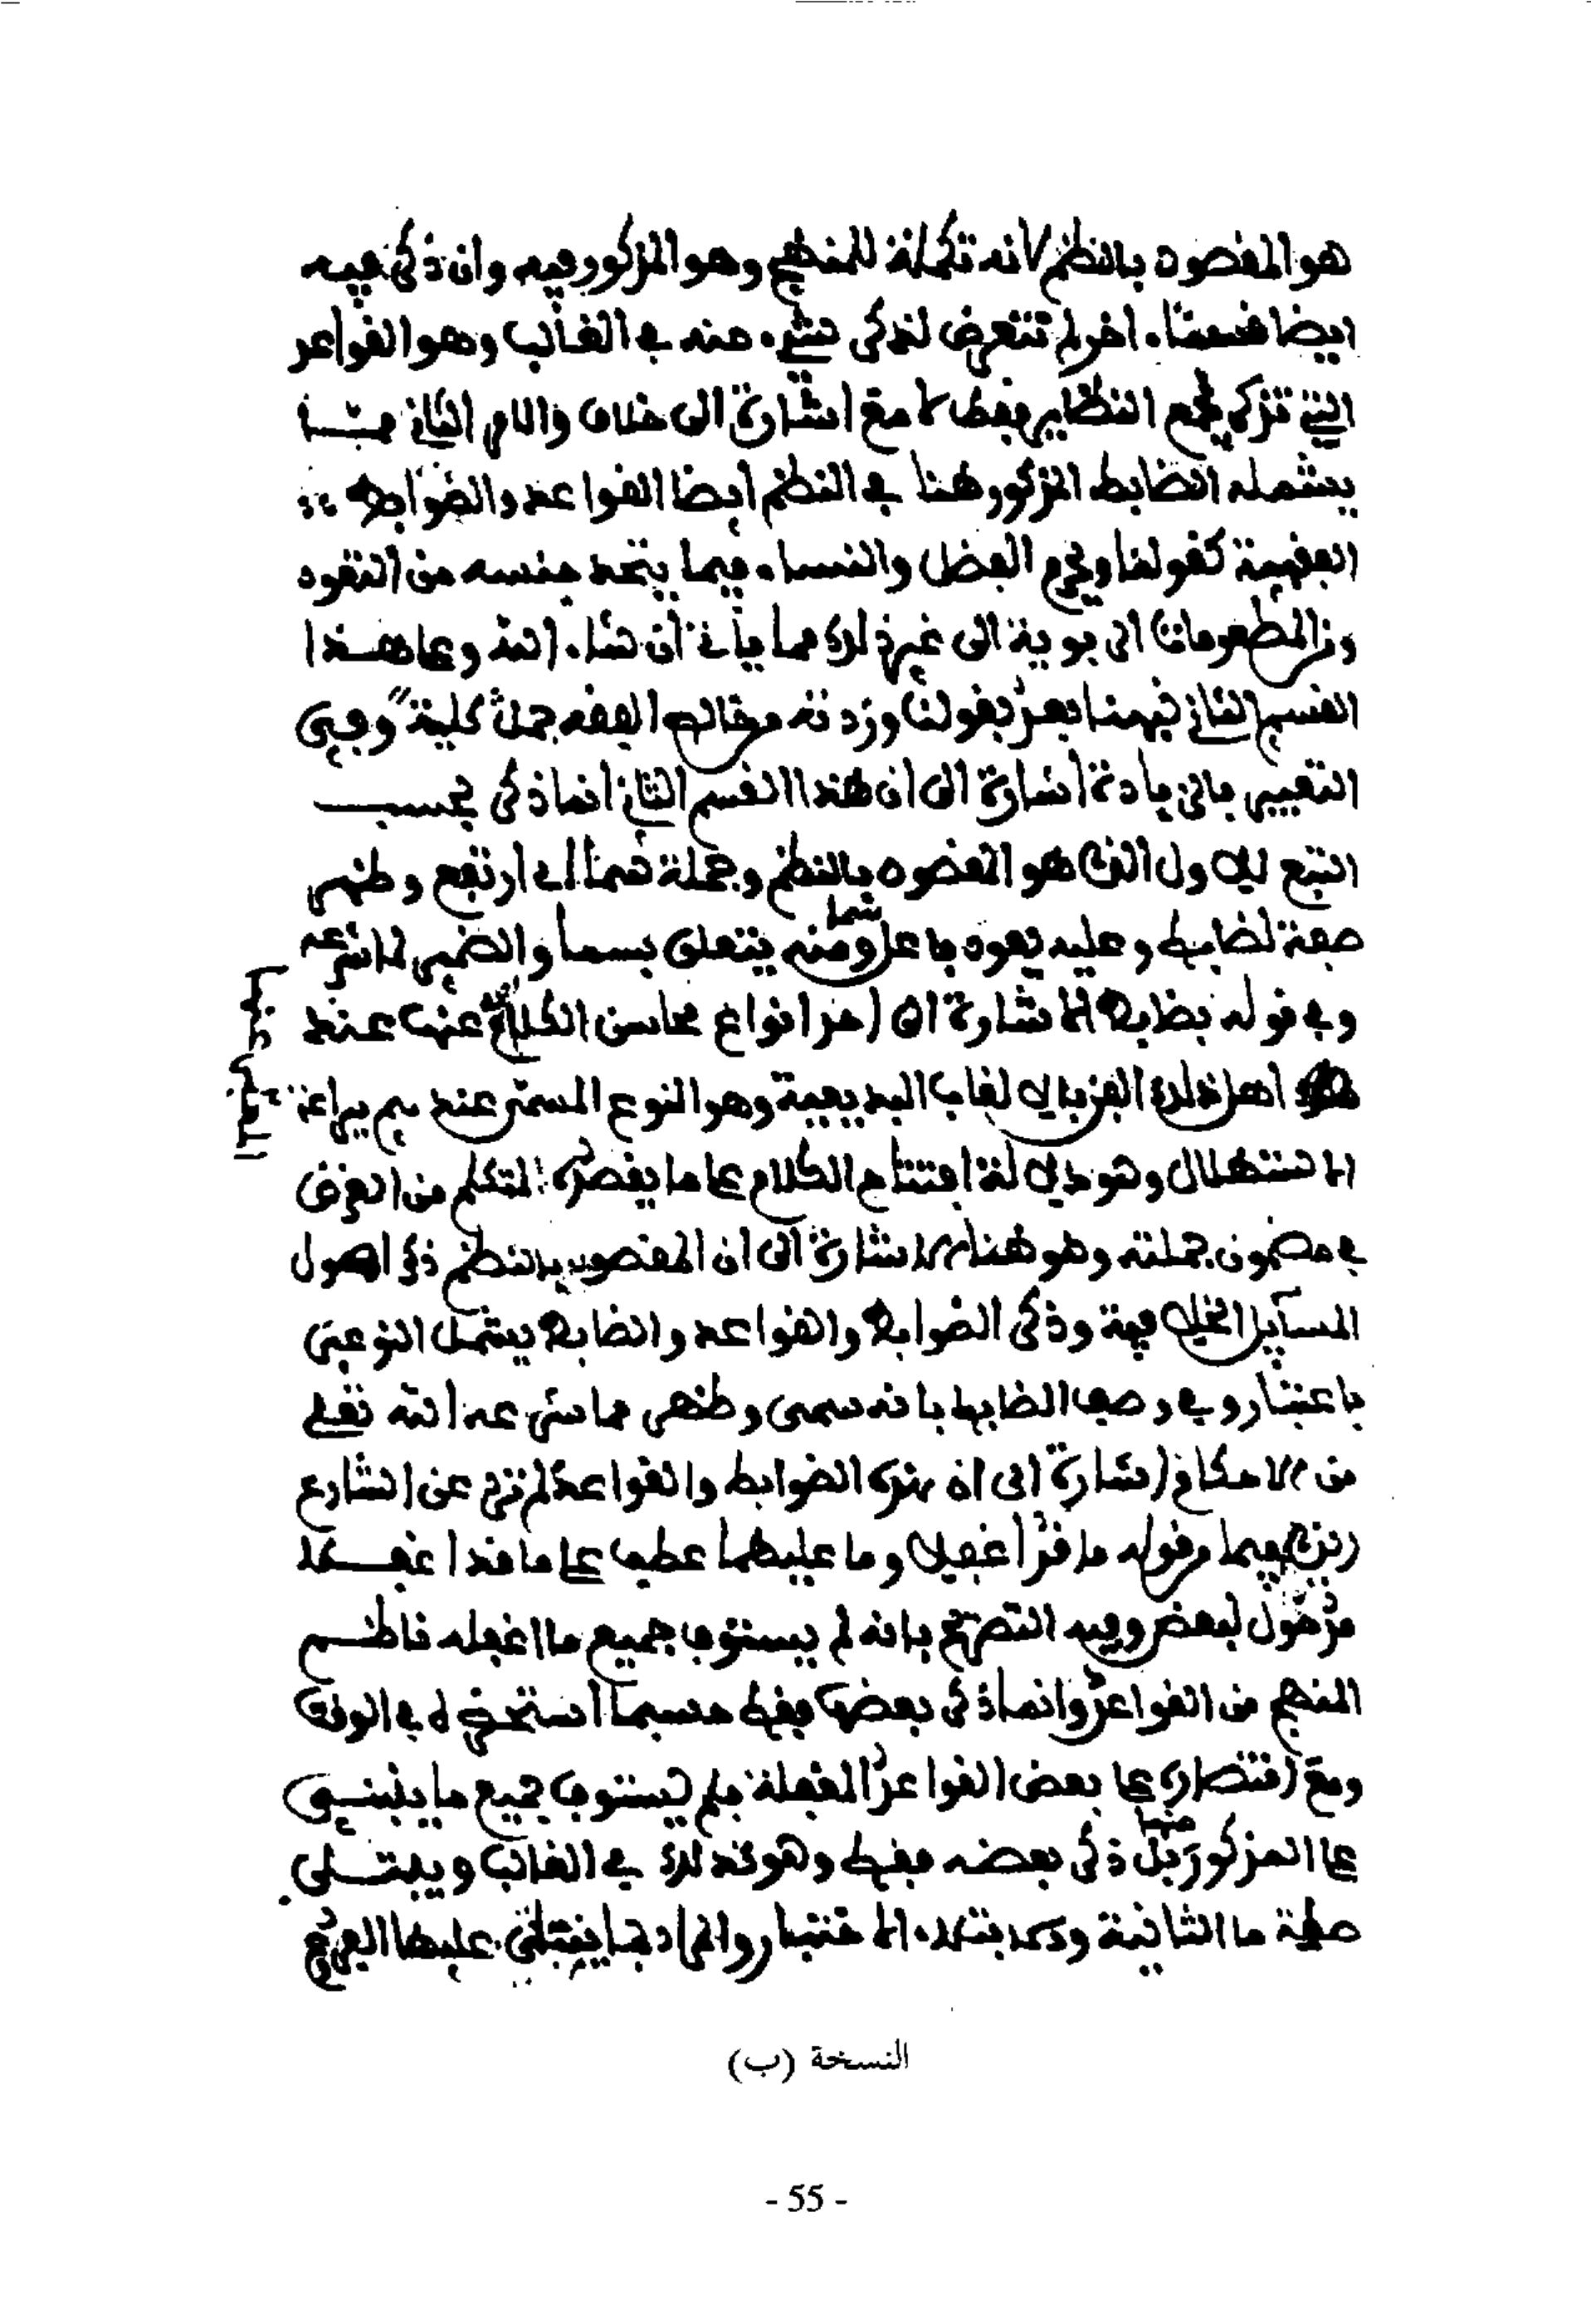 هو المقصود بالنظم لانه تكملة للمنهج وهو المذكور فيه وان ذكر فيه
ايضا قسما اخر لم تتعرض لذكر شيء منه في الغالب وهو القواعد
التي تذكر لجمع النظاير فقط لا مع اشارة الى خلاف والامر الثاني مما
يشمله الضابط المذكور هنا في النظم ايضا القواعد والضوابط
الفقهية كقولنا ويحرم الفضل والنساء فيما يتحد جنسه من النقود
ومن المطعومات الربوية الى غير ذلك مما ياتي ان شاء الله وعلى هذا
القسم الثاني نبهنا بعد بقولنا وزدته من قالب الفقه جمل كلية وفي
التعبير بالزيادة اشارة الى ان هذا القسم الثاني انما ذكر بحسب
التبع للاول الذي هو المقصود بالنظم وجملة سما اي ارتفع وظهر
صفة لضابط وعليه يعود فاعل سما ومنه يتعلق بسما والضمير لما شرعه
وفي قوله بضابط الاشارة الى احد انواع محاسن الكلام عنها عند
اهل ذلك الفن بالالقاب البديعية وهو النوع المسمى عندهم ببراعة
الاستهلال وهو دلالة افتتاح الكلام على ما يقصده المتكلم من الغرض
في مضمون جملته وهو هنا الاشارة الى ان المقصود بالنظم ذكر اصول
المسايل الخلافية وذكر الضوابط والقواعد والضابط يشمل النوعين
باعتبار وفي وصف الضابط بانه سمى وظهر مما شرعه الله تعلى
من الاحكام اشارة الى ان هذه الضوابط والقواعد لم تخرج عن الشارع
فيهما وقوله ما قد اغفلا وما عليهما عطف على ما قد اغفلا
مزحول لبعض وفيه التصريح بانه لم يستوف جميع ما اغفله ناظم
المنهج من القواعد وانما ذكر بعضها فقط حسبما استحضر له في الوقت
ومع اقتصاره على بعض القواعد المغفلة فلم يستوف جميع ما ينبني
على المذكور منها بل ذكر بعضه فقط وهو كذلك في الغالب ويبتلى
صلة ما الثانية والابتلاء الاختبار والمراد بها يبتلى عليها الفروع
النسخة (ب)
- 55 -